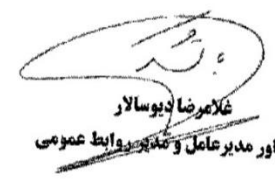 غلامرضا دیوسالار
اور مدیرعامل و مدیر روابط عمومی